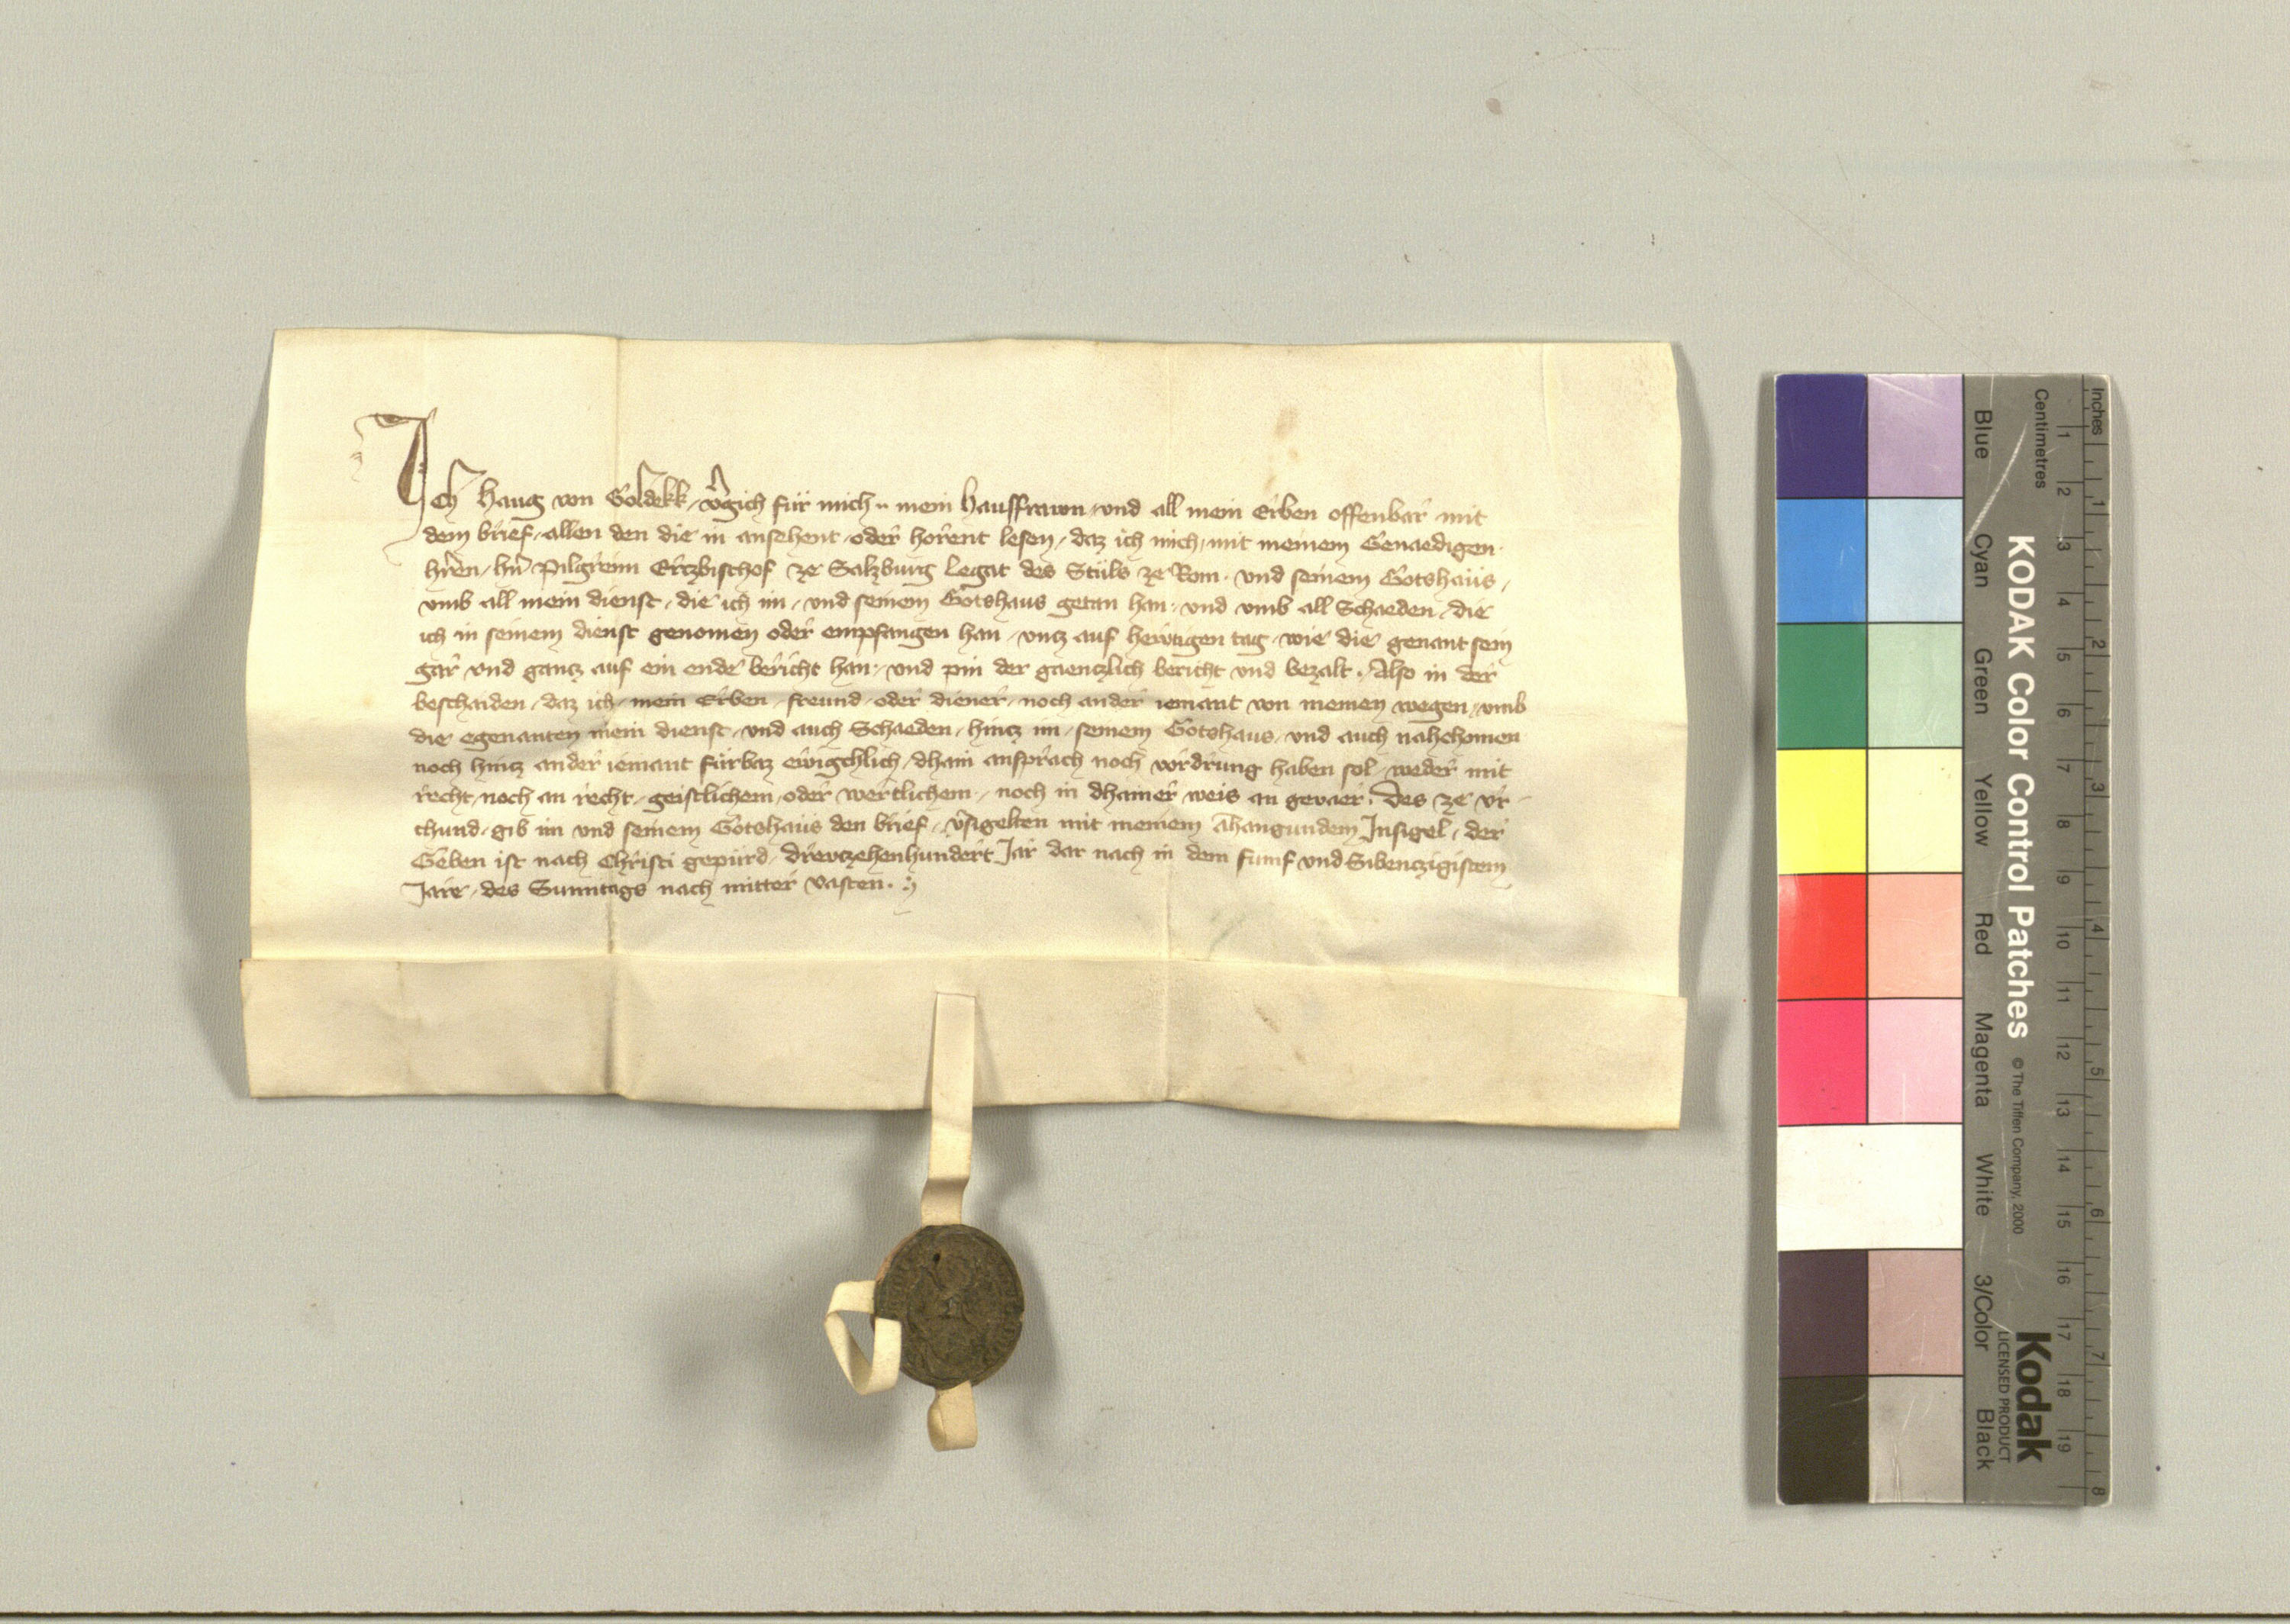 Ich Haug von Goldekk, v̂gich für mich, mein Hausfrawn, und all mein Erben offenbar mit
dem brief, allen den die in ansehent, oder horent lesen, daz ich mich, mit meinem Genaedigen
hren, hn Pilgreim Ertzbischof ze Salzburg Legat des Stuls ze Rom, und seinem Gotshaus,
vmb all mein dienst, die ich im, und seinem Gotshaus getan han, und vmb all Schaeden, die
ich in seinem dienst genomen oder empfangen han, vntz auf hewtigen tag, wie die genant sein
gar vnd gantz auf ein ende bericht han, und pin der gaentzlich bericht und bezalt. Also in der
beschaiden, daz ich, mein Erben, freund, oder diener, noch ander iemant von meinen wegen, vmb
die egenanten mein dienst, und auch Schaeden, hintz im, seinem Gotshaus, und auch nahchomen
noch hintz ander iemant fürbaz ewigchlich, dhain ansprach noch vordrung haben sol, weder mit
recht, noch an recht, geistlichem, oder wertlichem, noch in dhainer weis an gevaer. Des ze vr
chund, gib im und seinem Gotshaus den brief, v̂sigelten mit meinem anhangundem Insigel, der
Geben ist nach Christi gepurd, drewtzehenhundert Jar dar nach in dem fumf vnd Sibentzigistem
Jare, des Sunntags nach mitter vasten.
Inches
Centimetres
1 2 3 4 5 6 7 8
1 2 3 4 5 6 7 8 9 10 11 12 13 14 15 16 17 18 19
KODAK Color Control Patches © The Tiffen Company, 2000
Kodak
LICENSED PRODUCT
Blue Cyan Green Yellow Red Magenta White 3/Color Black